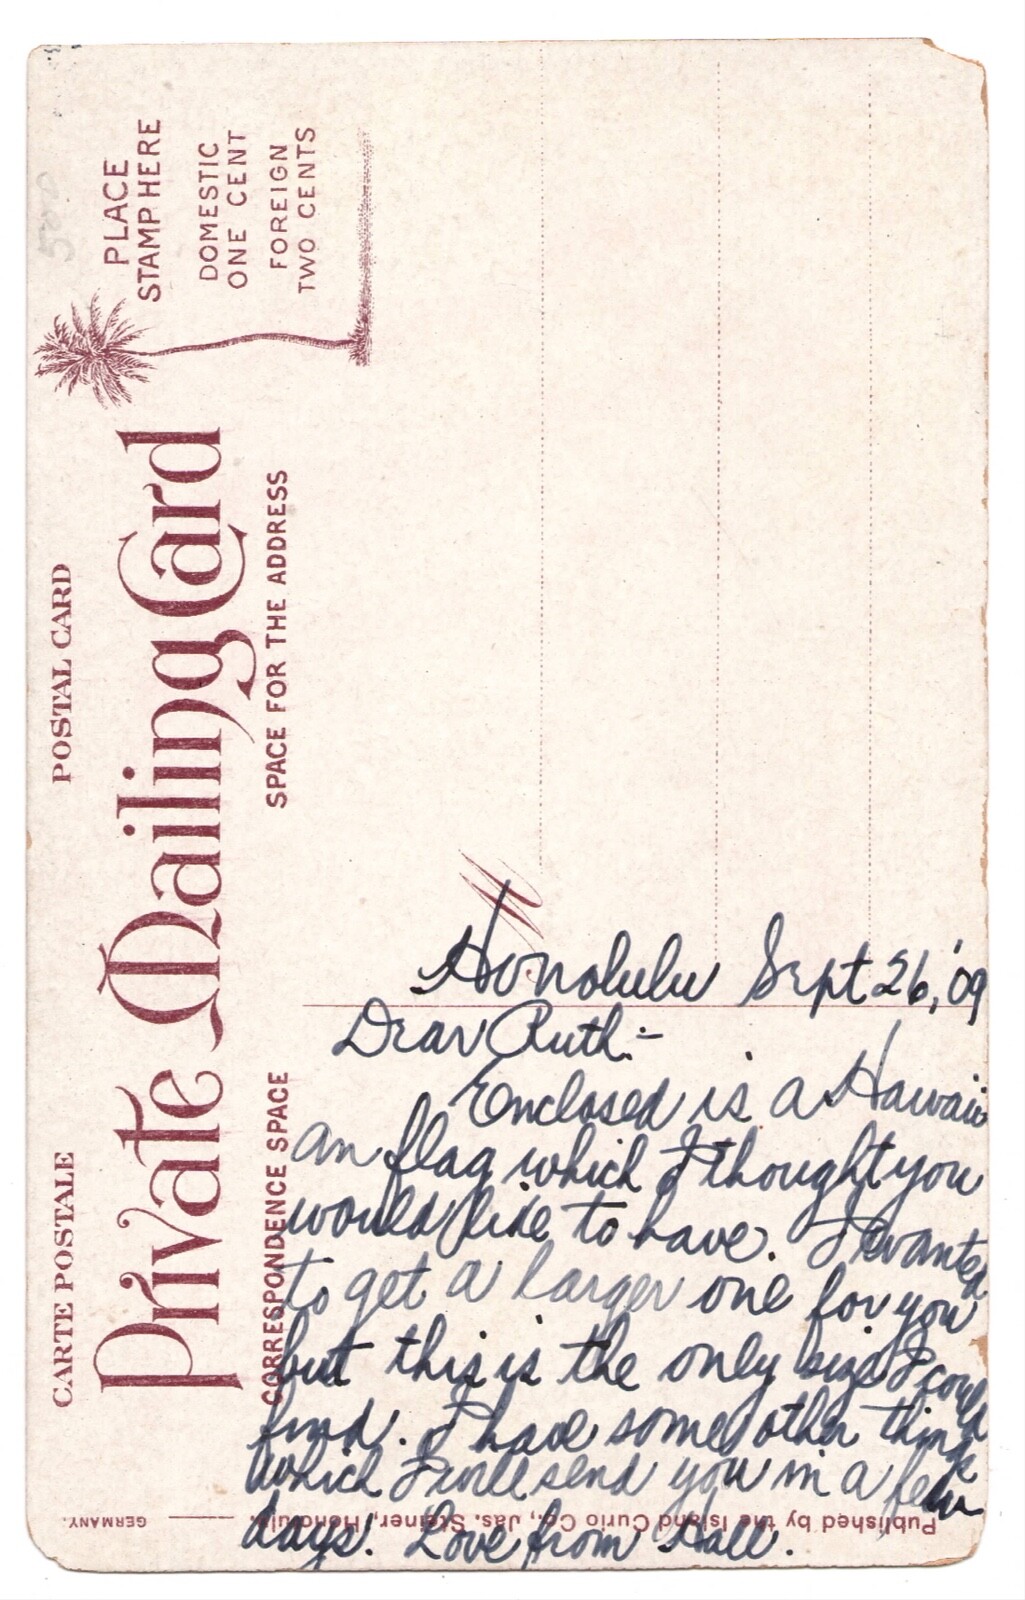 CARTE POSTALE
POSTAL CARD
Private Mailing Card
PLACE
STAMP HERE
DOMESTIC
ONE CENT
FOREIGN
TWO CENTS
SPACE FOR THE ADDRESS
CORRESPONDENCE SPACE
500
Honolulu Sept 26, '09
Dear Ruth:-
Enclosed is a Hawaii
an flag which I thought you
would like to have. I wanted
to get a larger one for you
but this is the only size I could
find. I have some other things
which I will send you in a few
days. Love from Hall.
Published by the Island Curio Co., Jas. Steiner, Honolulu.
GERMANY.